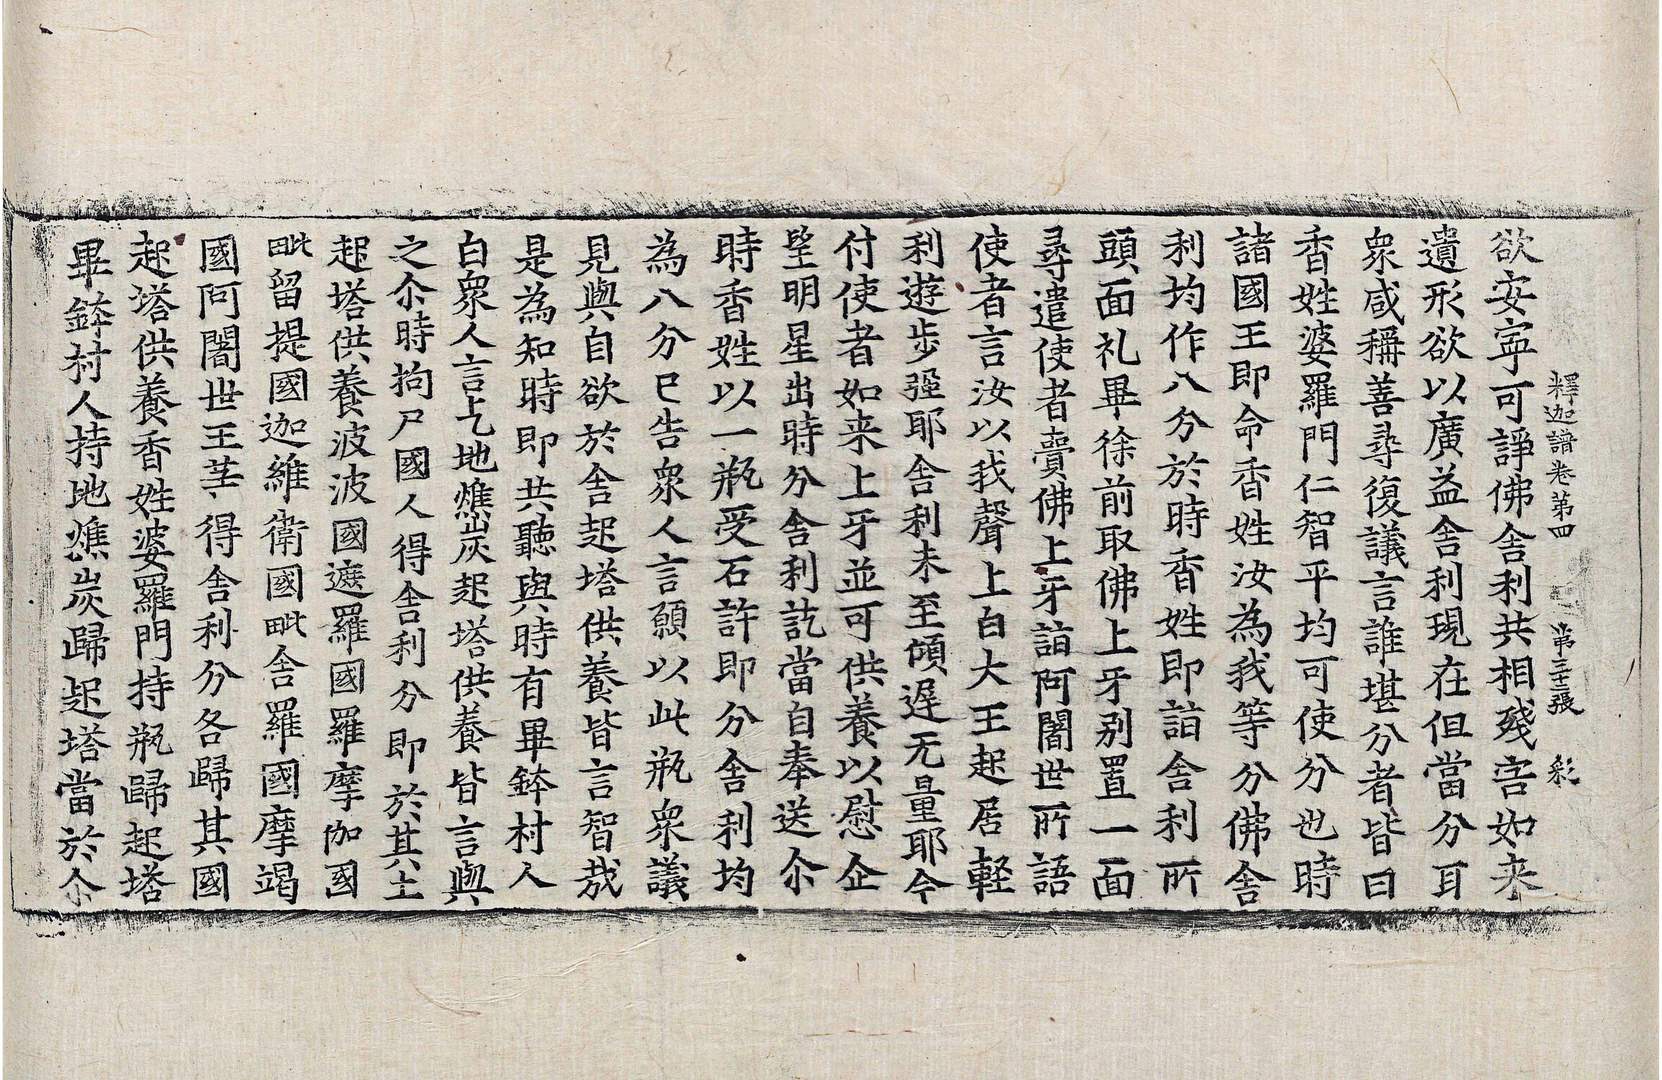 釋迦譜卷第四 第三十二張 彩
欲安寧可諍佛舍利共相殘害如来
遺形欲以廣益舍利現在但當分耳
衆咸稱善尋復議言誰堪分者皆曰
香姓婆羅門仁智平均可使分也時
諸國王即命香姓汝為我等分佛舍
利均作八分於時香姓即詣舍利所
頭面礼畢徐前取佛上牙别置一面
尋遣使者賷佛上牙詣阿闍世所語
使者言汝以我聲上白大王起居輕
利遊步強耶舍利未至傾遲无量耶今
付使者如来上牙並可供養以慰企
望明星出時分舍利訖當自奉送尒
時香姓以一瓶受石許即分舍利均
為八分已告衆人言願以此瓶衆議
見與自欲於舍起塔供養皆言智哉
是為知時即共聽與時有畢鉢村人
白衆人言乞地燋炭起塔供養皆言與
之尒時拘尸國人得舍利分即於其土
起塔供養波波國遮羅國羅摩伽國
毗留提國迦維衛國毗舍羅國摩竭
國阿闍世王等得舍利分各歸其國
起塔供養香姓婆羅門持瓶歸起塔
畢鉢村人持地燋炭歸起塔當於尒